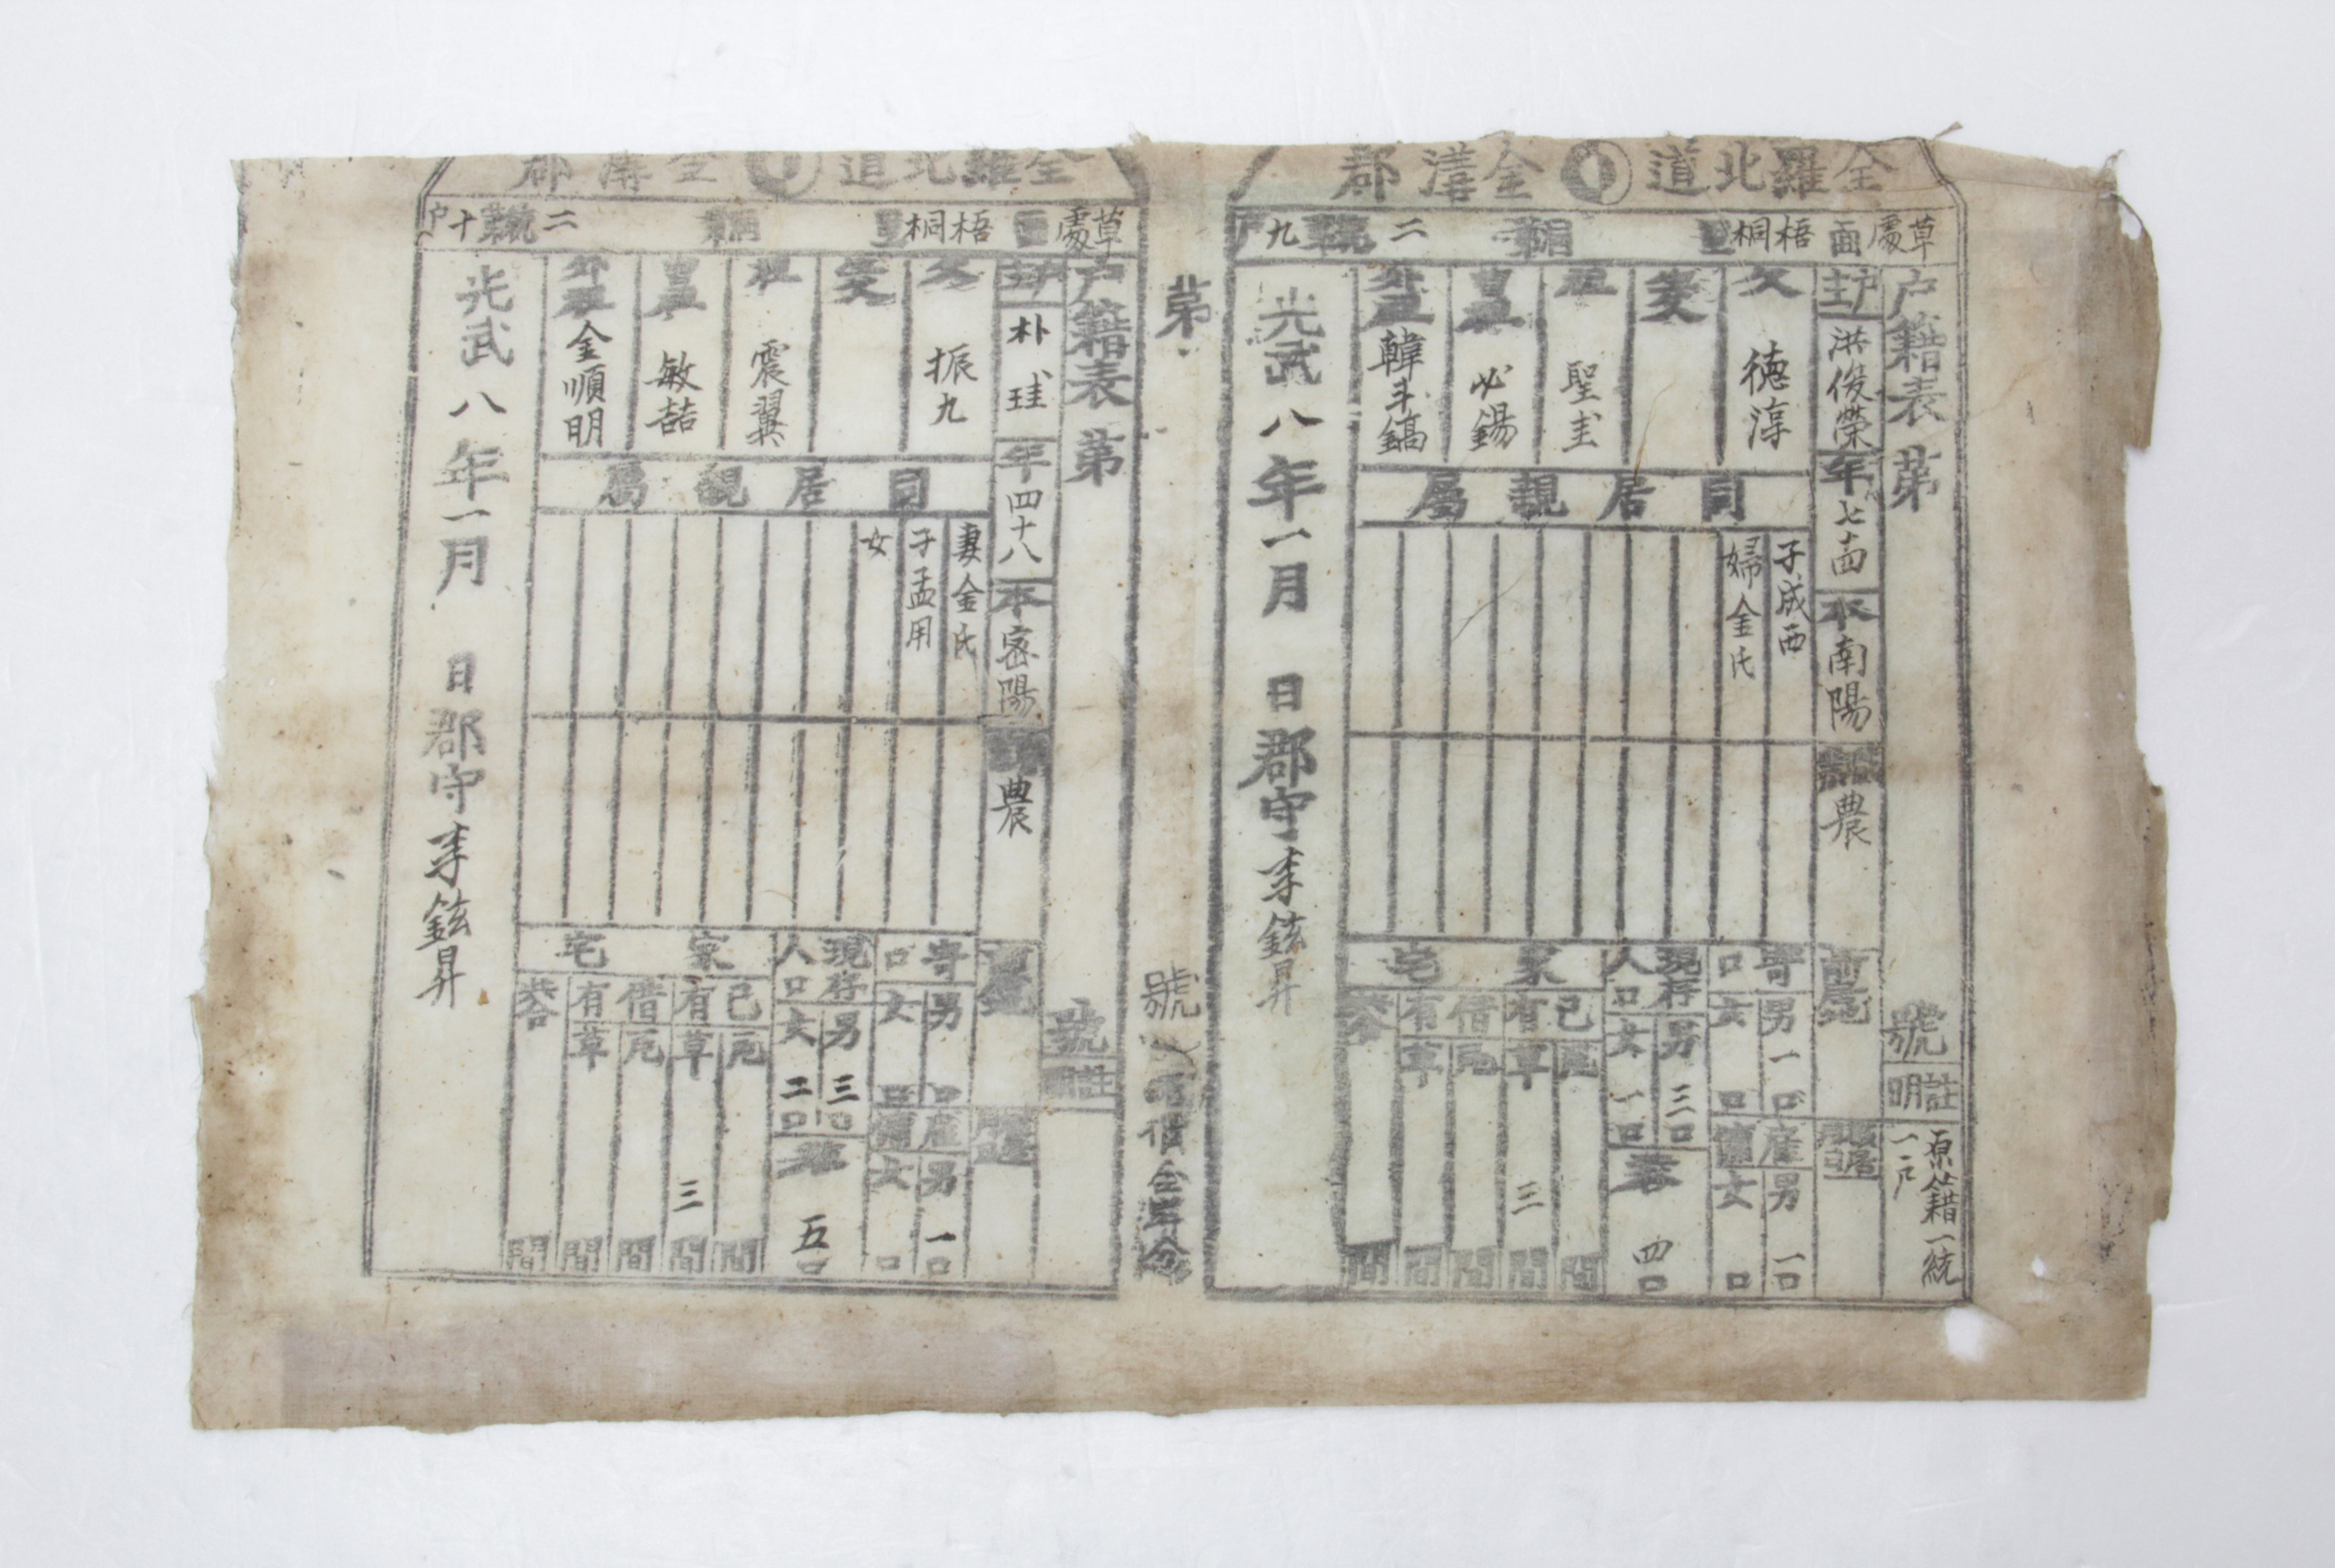 全羅北道 金溝郡
草處面 梧桐里 二統九戶
戶籍表 第 號
註明 原籍一統一戶
戶主 洪俊榮 年 七十四 本 南陽 農
前居地
父 德淳
生父
祖 聖圭
曾祖 必錫
外祖 韓斗鎬
同居親屬
子成西
婦金氏
寄口 男 一口 女 口
雇傭 男 一口 女 口
現存人口 男 三口 女 一口
共 四口
家宅
己有 瓦 間 草 三 間
借有 瓦 間 草 間
共合 間
光武八年一月 日 郡守 李鉉昇
第 號
全羅北道 金溝郡
草處面 梧桐里 二統十戶
戶籍表 第 號
註明
戶主 朴珪 年 四十八 本 密陽 農
父 振九
生父
祖 震翼
曾祖 敏喆
外祖 金順明
同居親屬
妻金氏
子孟用
女
寄口 男 口 女 口
雇傭 男 一口 女 口
現存人口 男 三口 女 二口
共 五口
家宅
己有 瓦 間 草 三 間
借有 瓦 間 草 間
共合 間
光武八年一月 日 郡守 李鉉昇